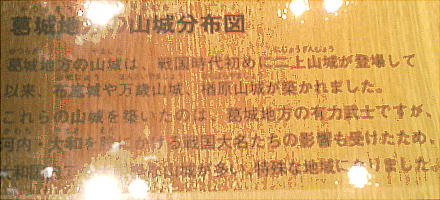 葛城地方の山城分布図
葛城地方の山城は、戦国時代初めに二上山城が登場して
以来、布施城や万歳山城、楢原山城が築かれました。
これらの山城を築いたのは、葛城地方の有力武士ですが、
河内・大和を にかける戦国大名たちの影響も受けたため、
大和国内 は山城が多い、特殊な地域になりました。